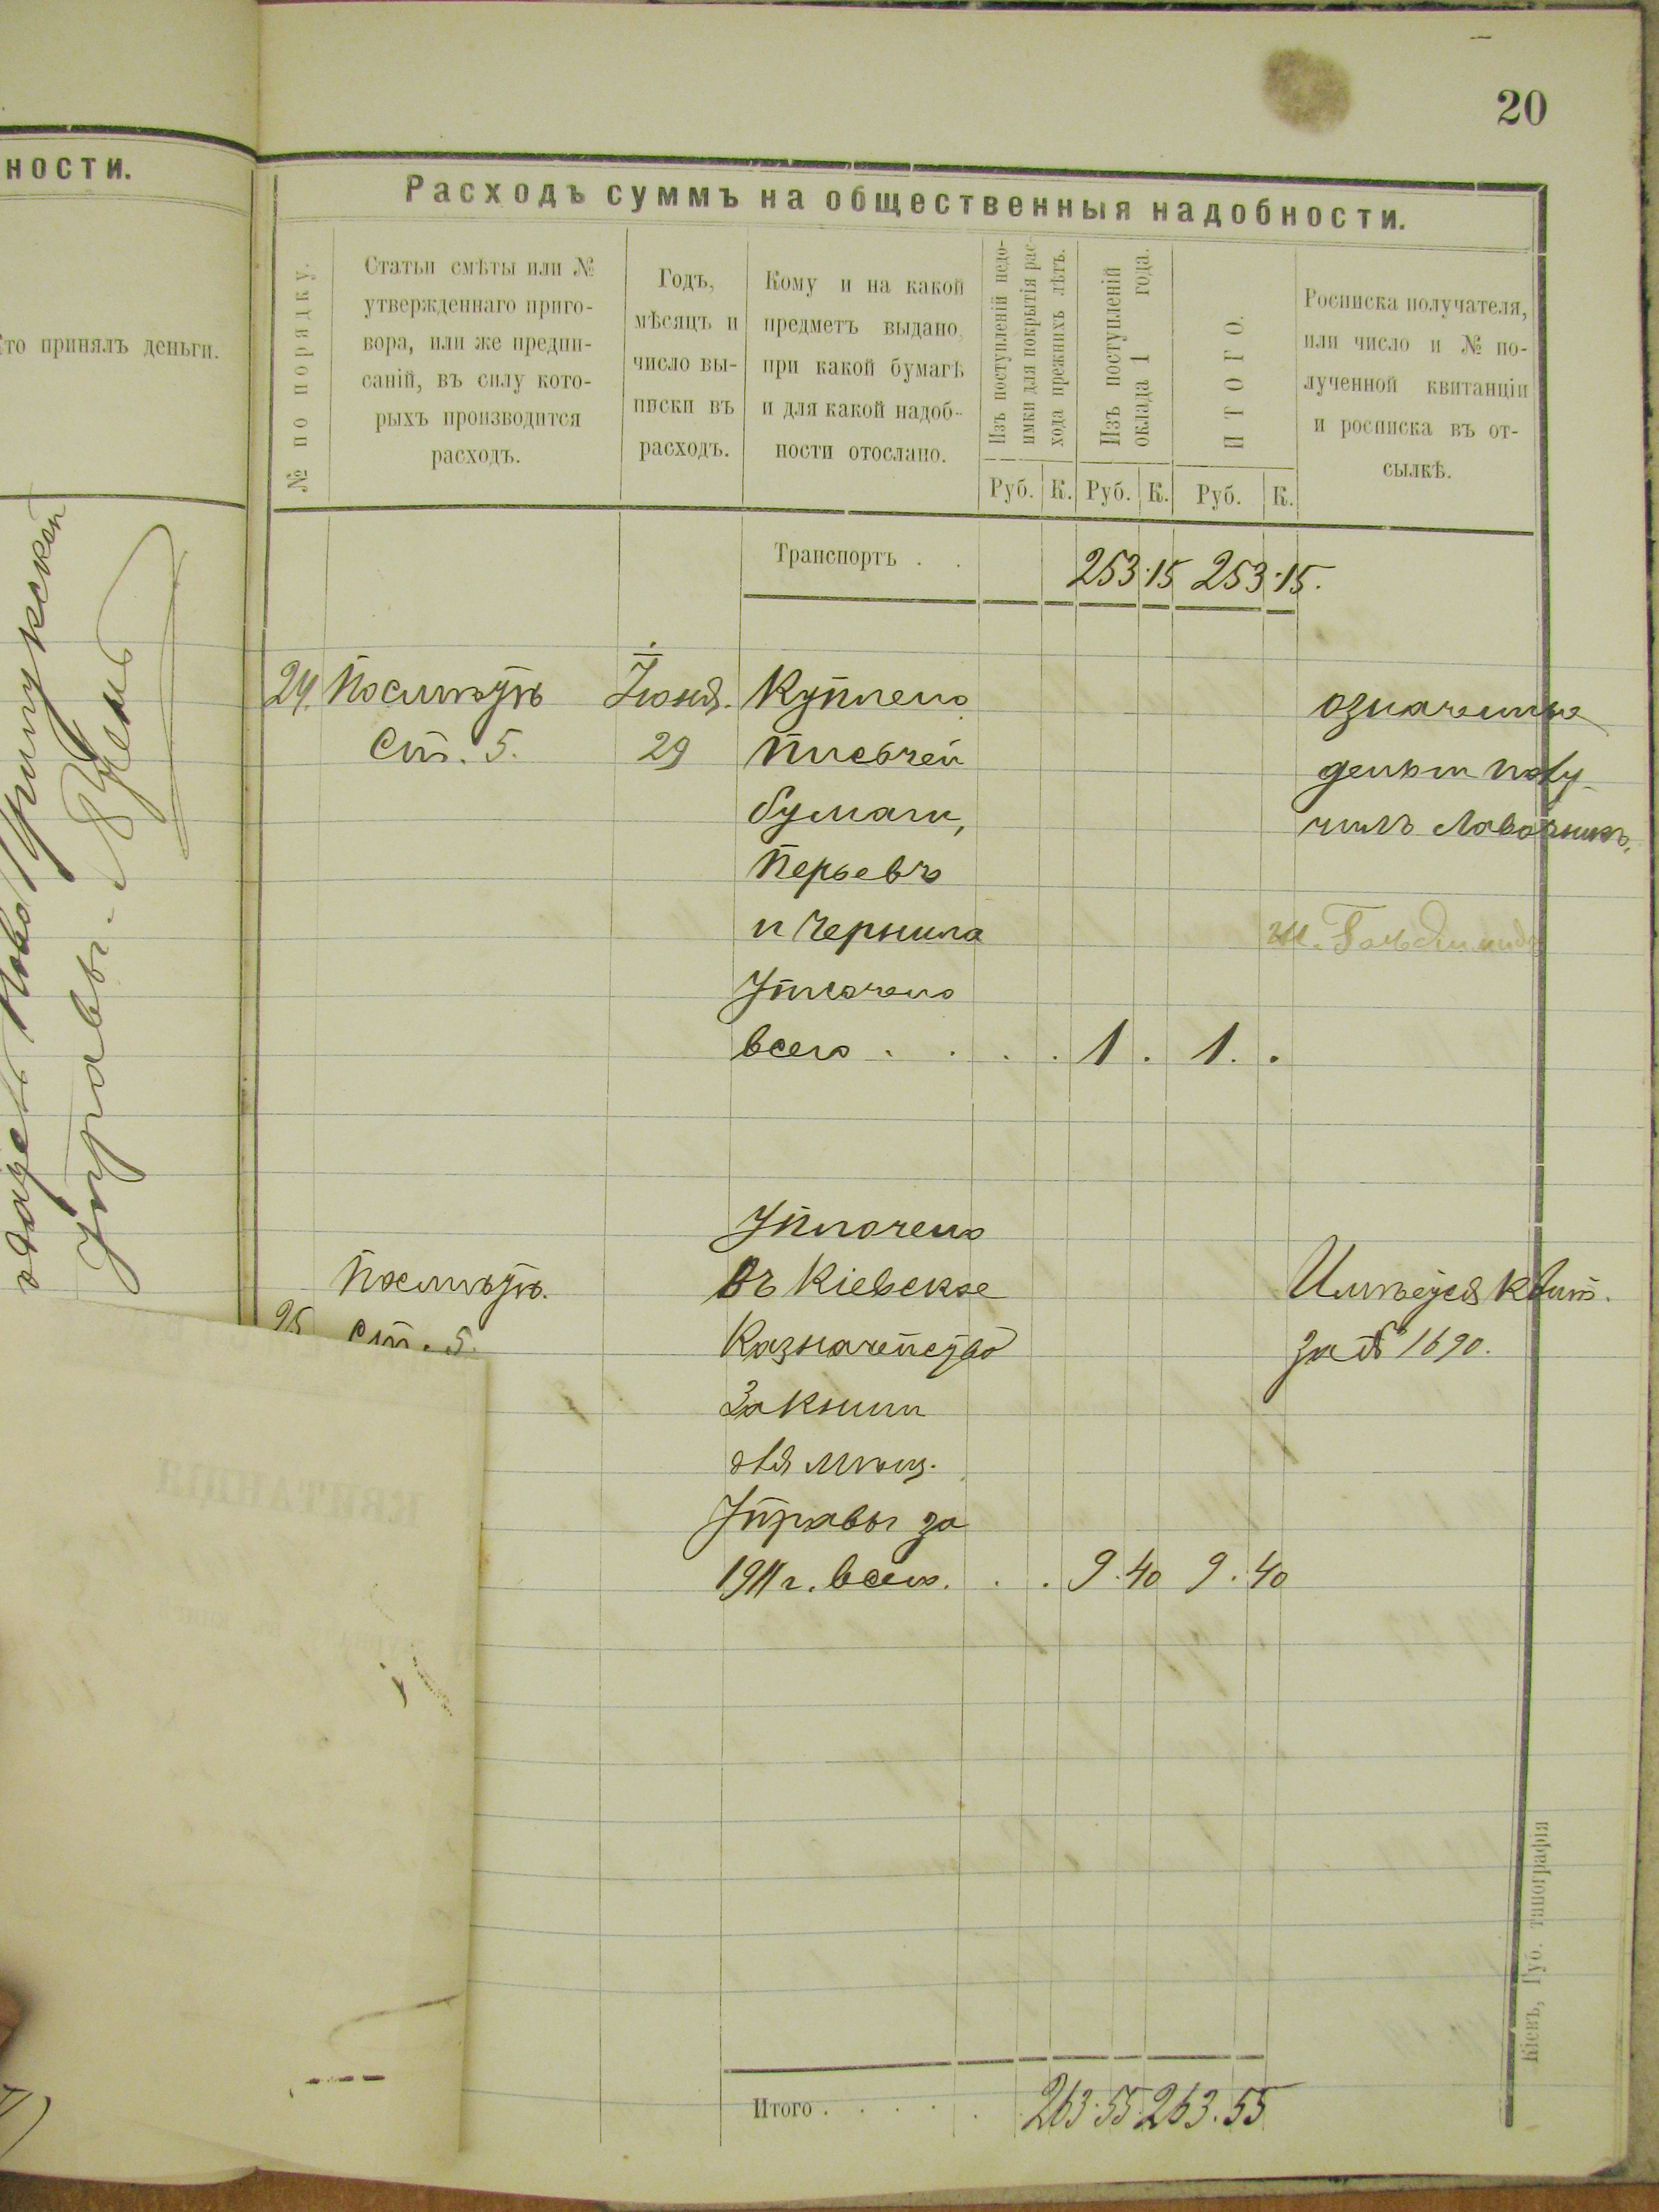 20
ности.
Кто принялъ деньги.
Расходъ суммъ на общественныя надобности.
№ по порядку.
Статьи смѣты или №
утвержденнаго приго-
вора, или же предпи-
саній, въ силу кото-
рыхъ производится
расходъ.
Годъ,
мѣсяцъ и
число вы-
писки въ
расходъ.
Кому и на какой
предметъ выдано,
при какой бумагѣ
и для какой надоб-
ности отослано.
Изъ поступленій недо-
имки для покрытія рас-
хода прежнихъ лѣтъ.
Изъ поступленій
оклада 1 года.
ИТОГО.
Росписка получателя,
или число и № по-
лученной квитанціи
и росписка въ от-
сылкѣ.
Руб. К. Руб. К. Руб. К.
Транспортъ . . 253.15 253.15.
24. По смѣтѣ Іюня. Куплено означенные
Ст. 5. 29 писчей деньги полу-
бумаги, чилъ Лавочникъ.
перьевъ
и чернила
Уплочено
всего . . . . 1 . 1 . .
Уплочено
По смѣтѣ. въ Кіевское Имѣется квит.
25 Ст. 5. Казначейство за № 1690.
за книги
для мѣщ.
Управы за
1911 г. всего. . . 9.40 9.40
КВИТАНЦІЯ
Итого . . . . . 263.55 263.55
Кіевъ, Губ. типографія
управы.